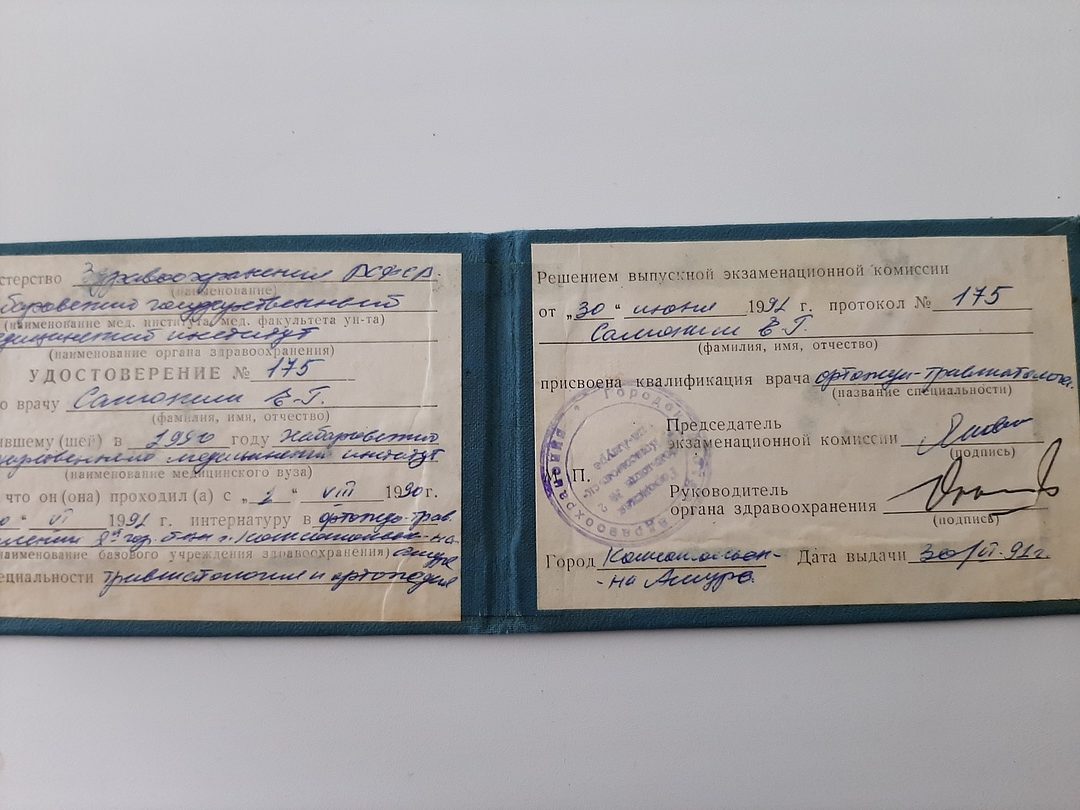 стерство Здравоохранения РСФСР.
(наименование)
баровский государственный
(наименование мед. института, мед. факультета ун-та)
едицинский институт
(наименование органа здравоохранения)
УДОСТОВЕРЕНИЕ № 175
о врачу Самонин Е.Г.
(фамилия, имя, отчество)
ившему (шей) в 1990 году Хабаровский
медицинский институт
(наименование медицинского вуза)
что он (она) проходил (а) с „1" VIII 1990 г.
" VI 1991 г. интернатуру в ортопедо-трав.
г. Комсомольск-на-
наименование базового учреждения здравоохранения) Амуре
ециальности травматология и ортопедия
Решением выпускной экзаменационной комиссии
от „30" июня 1991 г. протокол № 175
Самонин Е.Г.
(фамилия, имя, отчество)
присвоена квалификация врача ортопеда-травматолога.
(название специальности)
Председатель
экзаменационной комиссии
(подпись)
М. П.
Руководитель
органа здравоохранения
(подпись)
Город Комсомольск- Дата выдачи 30/VI-91г.
-на Амуре.